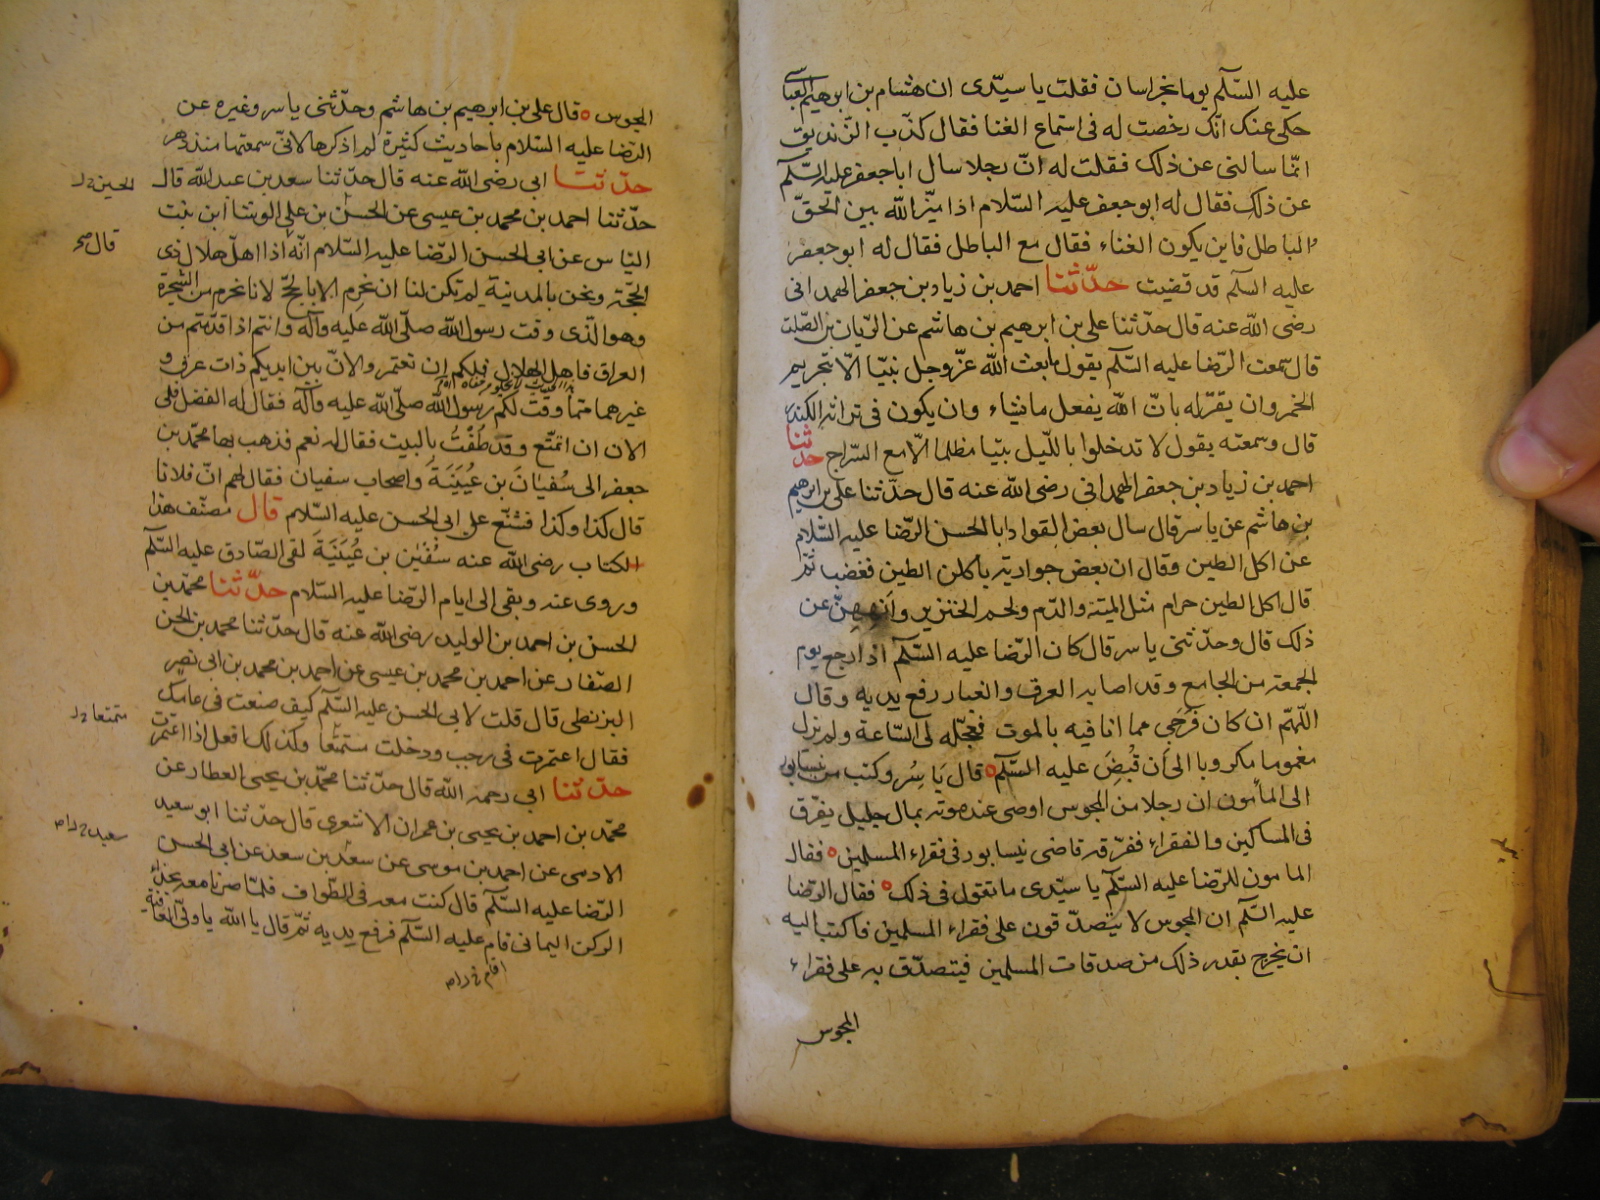 عليه السّلم يوما بخراسان فقلت يا سيّدى ان هشام بن ابرهيم العباسى
حكى عنك انّك رخصت له فى استماع الغنا فقال كذب الزنديق
انّما سالنى عن ذلك فقلت له انّ رجلا سال اباجعفر عليه السّلم
عن ذلك فقال له ابو جعفر عليه السّلام اذا ميّز الله بين الحقّ
والباطل فاين يكون الغناء فقال مع الباطل فقال له ابو جعفر
عليه السلم قد قضيت حدّثنا احمد بن زياد بن جعفر الهمدانى
رضى الله عنه قال حدّثنا على بن ابرهيم بن هاشم عن الريّان بن الصّلت
قال سمعت الرّضا عليه السّلم يقول ما بعث الله عزّ وجل نبيّا الّا بتحريم
الخمر وان يقرّ له بانّ الله يفعل ما يشاء وان يكون فى تراثه الكندر
قال وسمعته يقول لا تدخلوا باللّيل بيتا مظلما الّا مع السّراج حدثنا
احمد بن زياد بن جعفر الهمدانى رضى الله عنه قال حدّثنا على بن ابرهيم
بن هاشم عن ياسر قال سال بعض القواد ابا الحسن الرّضا عليه السّلام
عن اكل الطين وقال ان بعض جواريه ياكلن الطين فغضب ثمّ
قال اكل الطين حرام مثل الميتة والدّم ولحم الخنزير وانههنّ عن
ذلك قال وحدّثنى ياسر قال كان الرّضا عليه السّلم اذا رجع يوم
الجمعة من الجامع وقد اصابه العرق والغبار رفع يديه وقال
اللّهمّ ان كان فَرَجى مما انا فيه بالموت فعجّله لى السّاعة ولم يزل
مغموما مكروبا الى أن قُبِضَ عليه السّلم قال يَاسِر وكتب من نيسابور
الى المأمون ان رجلا من المجوس اوصى عند موته بمال جليل يفرّق
فى المساكين والفقراء ففرّقه قاضى نيسابور فى فقراء المسلمين فقال
المامون للرّضا عليه السّلم يا سيّدى ما تقول فى ذلك فقال الرّضا
عليه السّلم ان المجوس لا يتصدّقون على فقراء المسلمين فاكتب اليه
ان يخرج بقدر ذلك من صدقات المسلمين فيتصدّق به على فقراء
المجوس
المجوس قال على بن ابرهيم بن هاشم وحدّثنى ياسر وغيره عن
الرّضا عليه السّلام باحاديث كثيرة لم اذكرها لانّى سمعتها منذ دهر
حدّثنا ابى رضى الله عنه قال حدّثنا سعد بن عبد الله قال
حدّثنا احمد بن محمد بن عيسى عن الحسن بن على الوشّا ابن بنت
الياس عن ابى الحسن الرّضا عليه السّلام انّه اذا اهلّ هلال ذى
الحجّة ونحن بالمدينة لم تكن لنا ان نحرم الا بالحجّ لانا نحرم من الشّجرة
وهو الّذى وقت رسول الله صلّى الله عليه وآله وانتم اذا قدمتم من
العراق فاهل الهلال فلكم ان تعتمر والانّ بين ايديكم ذات عرق و
غيرهما ممّا وقّت لكم رسول الله صلّى الله عليه وآله فقال له الفضل فلى
الان ان اتمّتع وقد طُفْتُ بالبيت فقال له نعم فذهب بها محمّد بن
جعفر الى سُفيَانَ بن عُيَيْنَةَ واصحاب سفيان فقال لهم انّ فلانا
قال كذا وكذا فشنّع على ابى الحسن عليه السّلام قال مصنّف هذا
الكتاب رضى الله عنه سُفْيٰن بن عُيَيْنَةَ لقى الصّادق عليه السّلم
وروى عنه وبقى الى ايام الرّضا عليه السّلام حدّثنا محمّد بن
الحسن بن احمد بن الوليد رضى الله عنه قال حدّثنا محمد بن الحسن
الصّفار عن احمد بن محمد بن عيسى عن احمد بن محمد بن ابى نصر
البزنطى قال قلت لابى الحسن عليه السّلم كيف صنعت فى عامك
فقال اعتمرت فى رجب ودخلت متمتّعا وكذلك افعل اذا اعتمرت
حدّثنا ابى رحمه الله قال حدّثنا محمّد بن يحيى العطار عن
محمّد بن احمد بن يحيى بن عمران الاشعرى قال حدّثنا ابو سعيد
الادمى عن احمد بن موسى عن سعد بن سعد عن ابى الحسن
الرّضا عليه السّلم قال كنت معه فى الطّواف فلمّا صرنا معه بحذاء
الركن اليمانى قام عليه السّلم فرفع يديه ثمّ قال يا الله يا ولىّ العافية
الحسين
قال صح
متمتعا
سعيد
اقام